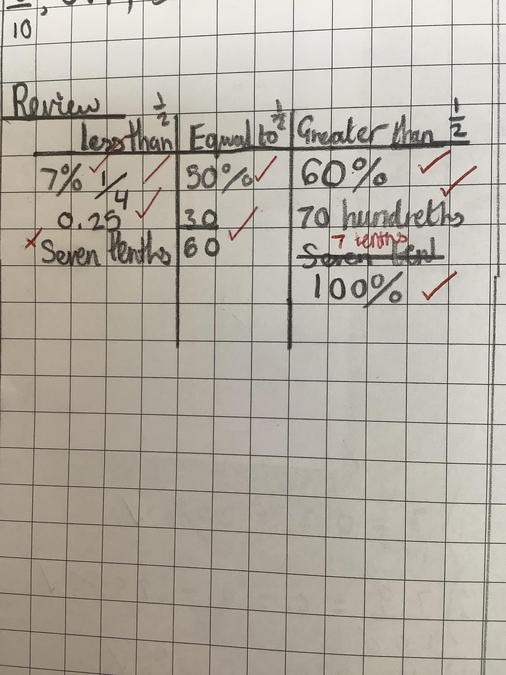 10
Review
less than 1/2 | Equal to 1/2 | Greater than 1/2
7% 1/4 | 50% | 60%
0.25 | 30/60 | 70 hundreths
Seven tenths | 7 tenths
Seven tent
100%